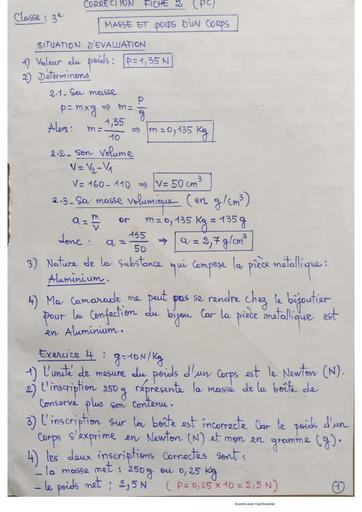 CORRECTION FICHE 2 (PC)
Classe : 3e
MASSE ET POIDS D'UN CORPS
SITUATION D'EVALUATION
1) Valeur du poids : P=1,35N
2) Déterminons
2.1- Sa masse
P=mxg ⇒ m= P/g
Alors: m= 1,35/10 ⇒ m=0,135 Kg
2.2- son volume
V=V2-V1
V= 160-110 ⇒ V=50cm³
2.3- Sa masse volumique (en g/cm³)
a= m/V or m=0,135 Kg = 135g
donc : a= 135/50 ⇒ a=2,7g/cm³
3) Nature de la substance qui compose la pièce métallique :
Aluminium.
4) Ma camarade ne peut pas se rendre chez le bijoutier
pour la confection du bijou Car la pièce métallique est
en Aluminium.
Exercice 4 : g=10N/Kg
1) L'unité de mesure du poids d'un corps est le Newton (N).
2) L'inscription 250g représente la masse de la boîte de
conserve plus son contenu.
3) L'inscription sur la boîte est incorrecte Car le poids d'un
corps s'exprime en Newton (N) et non en gramme (g).
4) les deux inscriptions correctes sont :
- la masse net : 250g ou 0,25 Kg
- le poids net : 2,5N (P=0,25x10=2,5N)
1
Scanné avec CamScanner